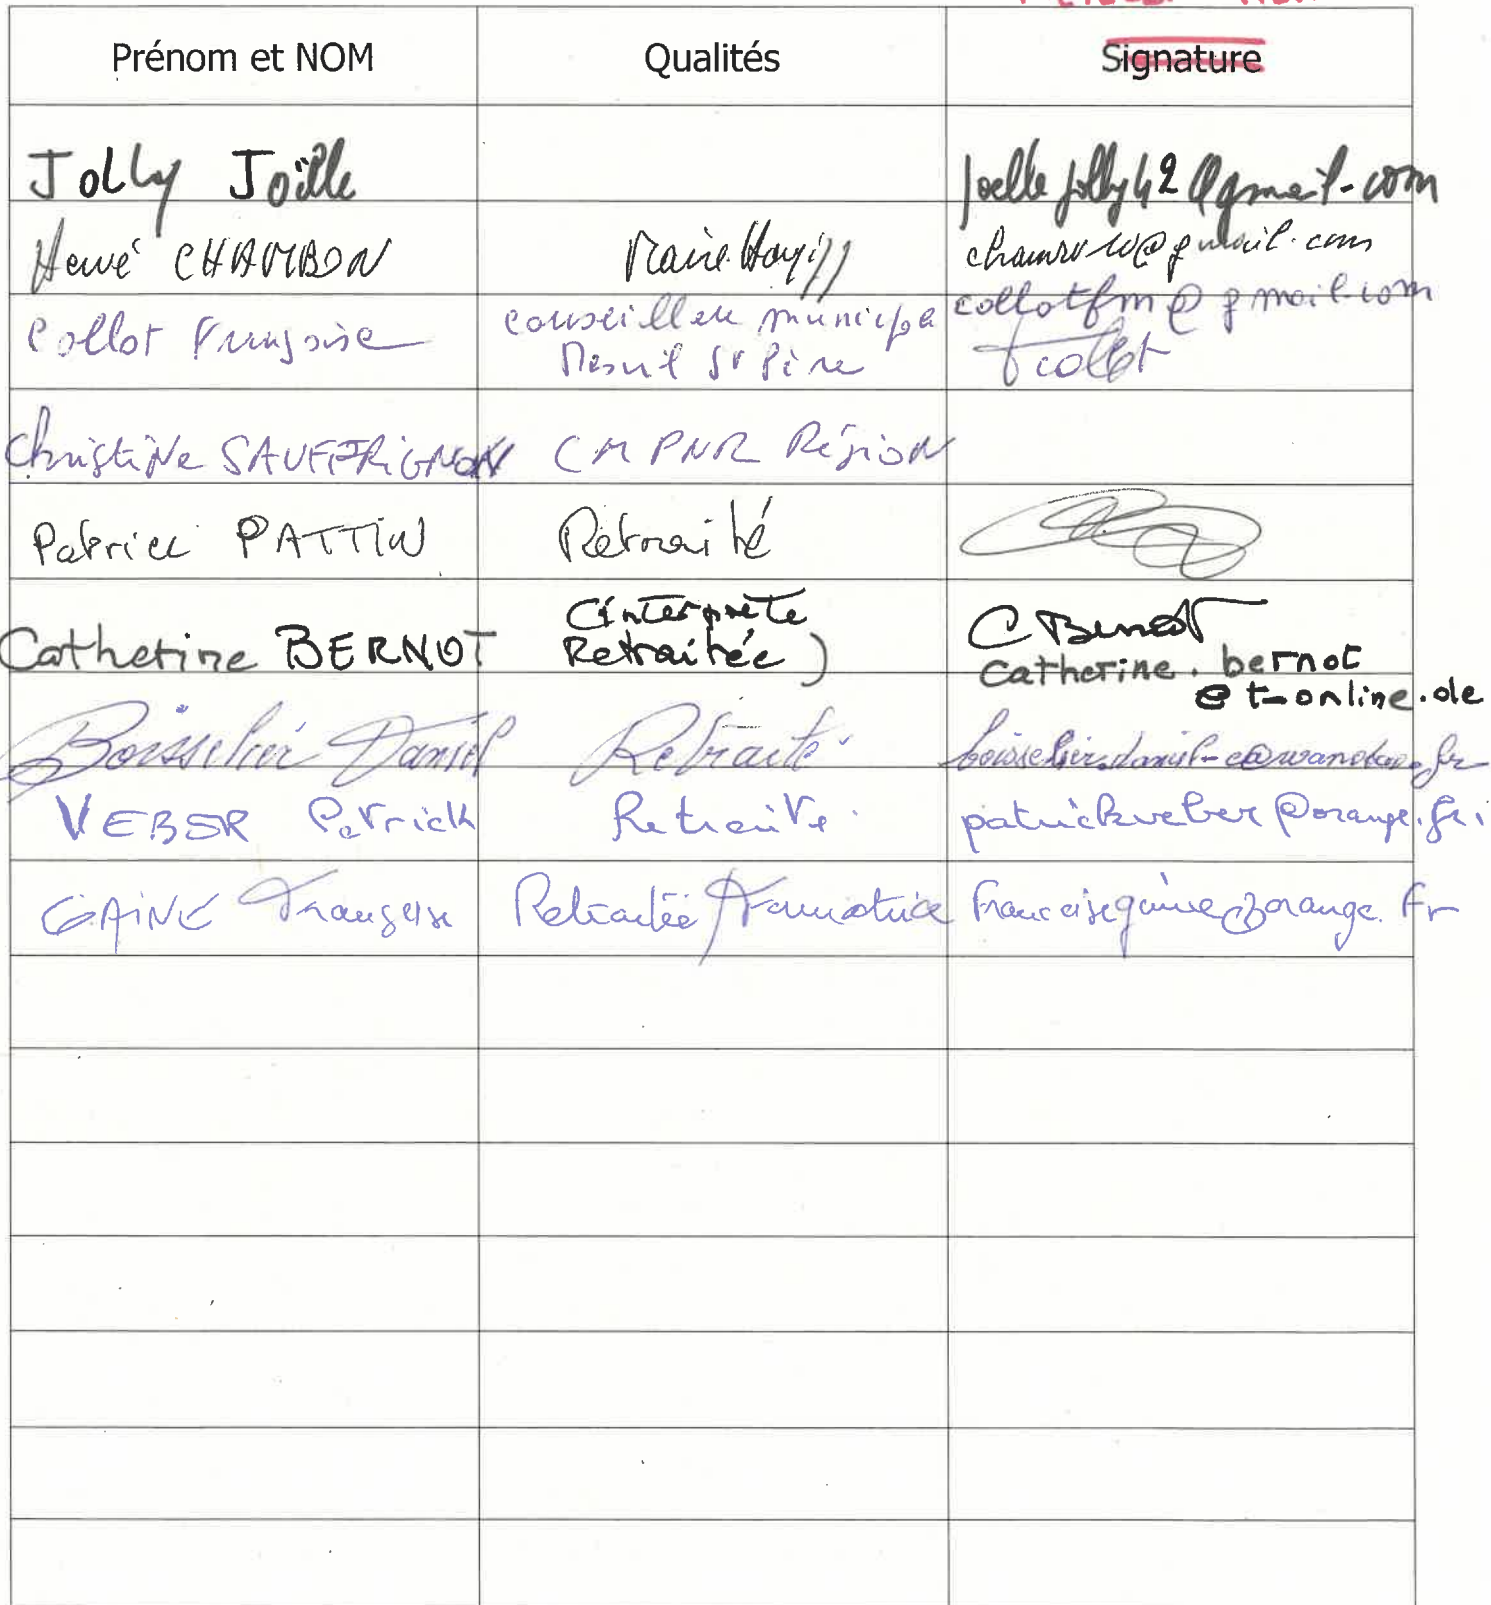 Prénom et NOM Qualités Signature
Jolly Joëlle joellejolly42@gmail.com
Hervé CHAMBON Maire @gmail.com
Collot Françoise conseillere municipa collotfm@gmail.com
Mesnil St Père Fcollot
Christine SAUFFRIGNON CM PNR Région
Patrice PATTIN Retraité
Catherine BERNOT (interprète C Bernot
Retraitée) catherine.bernot
@t-online.de
Boisselier Daniel Retraité boisselier.daniel-c@wanadoo.fr
VEBER Patrick Retraité. patrickveber@orange.fr
GAINE Françoise Retraitée Formatrice francoisegaine@orange.fr